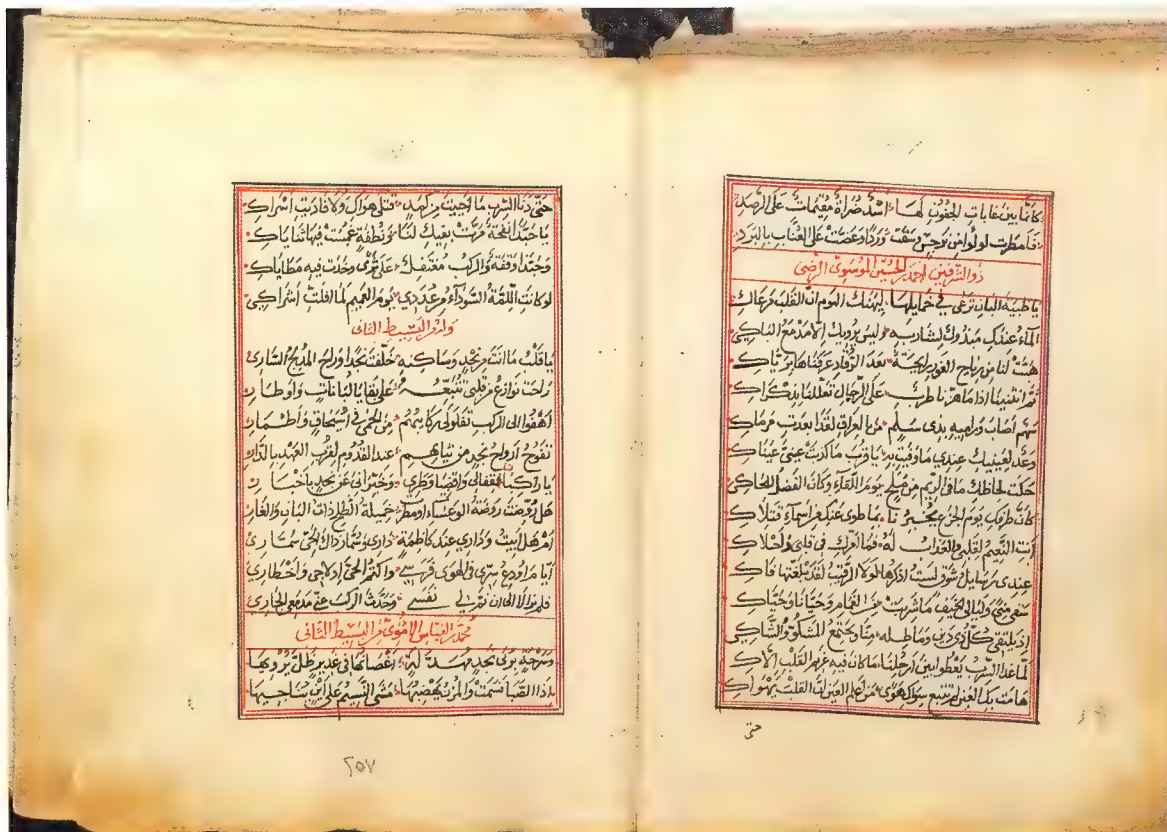 كأنما بين غابات الجفون لها أسد ضراة مقيمات على الرصد
فأمطرت لؤلؤا من نرجس وسقت وردا وعضت على العناب بالبرد
ذو الشرفين احمد الحسين الموسوي الرضي
يا ظبية البان ترعى في خمايلها ليهنك اليوم ان القلب مرعاك
الماء عندك مبذول لشاربه وليس يرويك الا مدمع الباكي
هبت لنا من رياح الغور رايحة بعد الرقاد عرفناها برياك
ثم انثنينا اذا ما هزنا طرب على الرحال تعللنا بذكراك
سهم اصاب وراميه بذي سلم من بالعراق لقد ابعدت مرماك
وعد لعينيك عندي ما وفيت به يا قرب ما كذبت عيني عيناك
حكت لحاظك ما في الريم من ملح يوم اللقاء وكان الفضل للحاكي
كأن طرفك يوم الجزع يخبرنا بما طوى عنك من اسماء قتلاك
انت النعيم لقلبي والعذاب له فما امرك في قلبي واحلاك
عندي رسايل شوق لست اذكرها لولا الرقيب لقد بلغتها فاك
سقى منى وليالي الخيف ما شربت من الغمام وحيانا وحياك
اذ يلتقي كل ذي دين وماطله منا ويجتمع المشكو والشاكي
لما غدا السرب يعطو بين ارحلنا ما كان فيه غريم القلب الاك
هامت بك العين لم تتبع سواك هوى من اعلم العين ان القلب يهواك
حتى
حتى دنا السرب ما احييت من كمد قتلى هواك ولا فاديت اسراك
يا حبذا نفحة مرت بفيك لنا ونطفة غمست فيها ثناياك
وحبذا وقفة والركب مغتفل على ثرى وخدت فيه مطاياك
لو كانت اللمة السوداء من عددي يوم الغميم لما افلت اشراكي
وله من البسيط الثاني
يا قلب ما انت من نجد وساكنه خلفت نجدا وراء المدلج الساري
راحت نوازع من قلبي تتبعه على بقايا لبانات واوطار
اهفوا الى الركب تعلو لي ركابهم من الحمى في اسيحاق واطمار
تفوح ارواح نجد من ثيابهم عند القدوم لقرب العهد بالدار
يا راكبان قفا لي واقضيا وطري وخبراني عن نجد باخبار
هل روضت روضة الوعساء او مطرت خميلة الطلح ذات البان والغار
ام هل ابيت وداري عند كاظمة داري وسمار ذاك الحي سماري
ايام اودع سري في الهوى فرسي واكتم الحي ادلاجي واخطاري
فلم يزالا الى ان نم بي نفسي وحدث الركب عني مدمعي الجاري
محمد بن العباس الاموي من البسيط الثاني
وسرحة بربى نجد مهدلة اغصانها في غدير ظل يرويها
اذا الصبا نسمت والمزن يهضبها مشى النسيم على اين يناجيها
٢٥٧